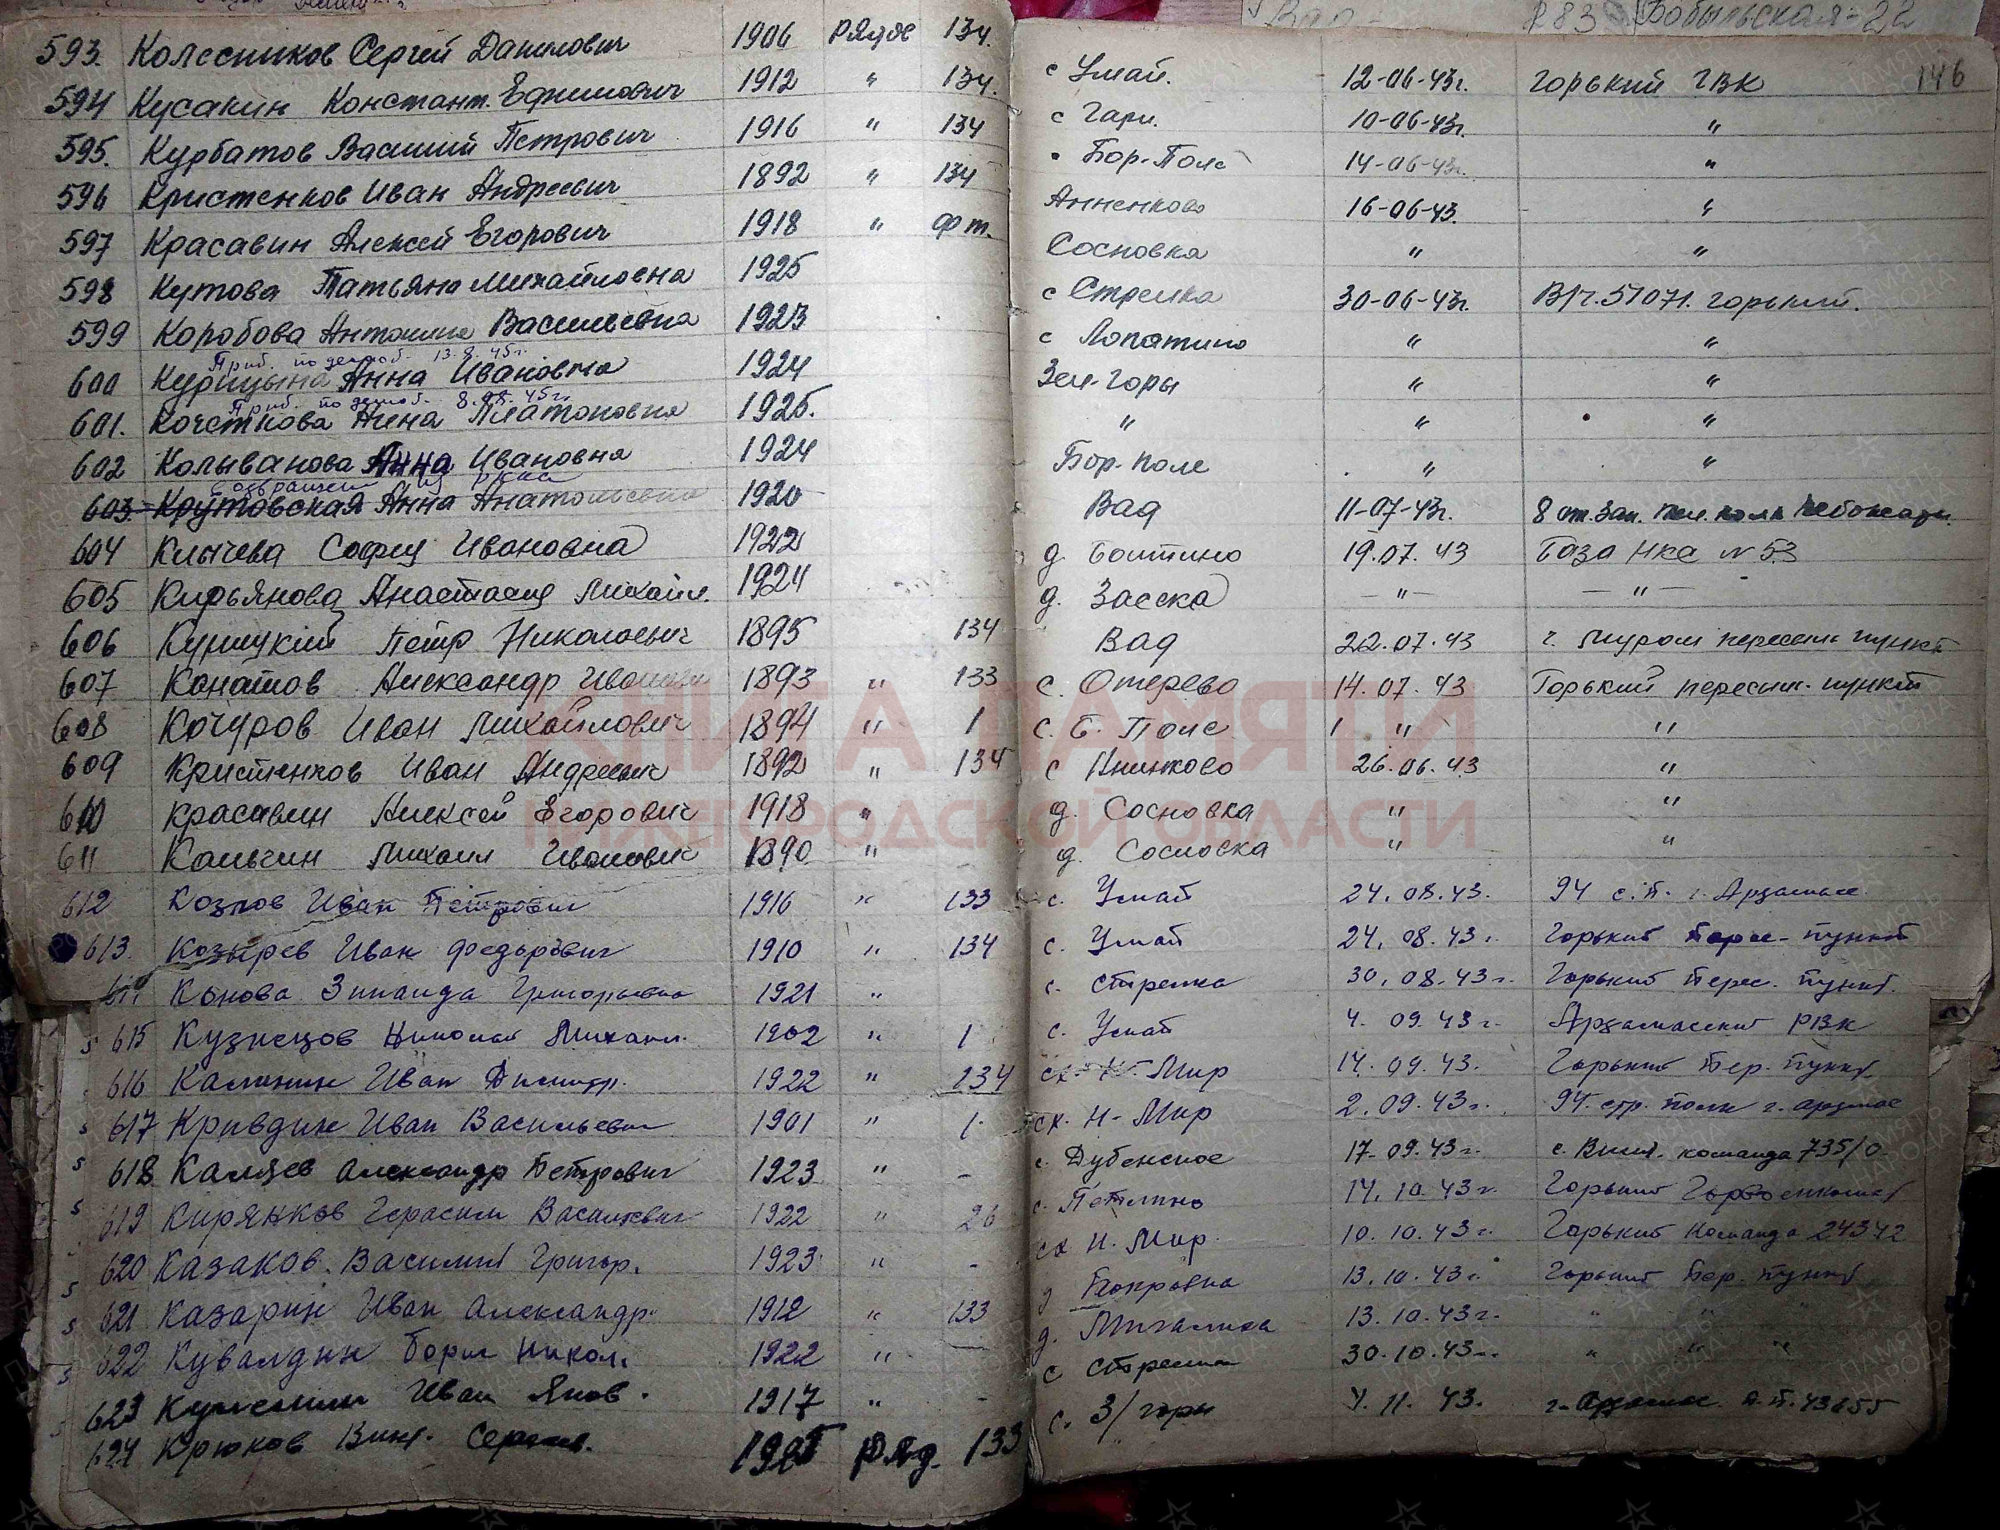 Бобыльская-22
146
593. Колесников Сергей Данилович 1906 рядов 134. с Умай. 12-06-43г. Горький ГВК
594 Кусакин Констант. Ефимович 1912 " 134. с Гари. 10-06-43г. "
595. Курбатов Василий Петрович 1916 " 134 Бор-Поле 14-06-43г. "
596 Кристенков Иван Андреевич 1892 " 134 Анненково 16-06-43. "
597 Красавин Алексей Егорович 1918 " ф т. Сосновка " "
598 Кутова Татьяна Михайловна 1925 с Стрелка 30-06-43г. В/ч.51071. Горький.
599 Коробова Антонина Васильевна 1923 с Лопатино " "
Приб. по демоб. 13.8.45г.
600 Курицына Анна Ивановна 1924 Зел-Горы " "
Приб. по демоб. 8.08.45г.
601. Кочеткова Нина Платоновна 1925. " " "
602 Колыванова Анна Ивановна 1924 Бор-поле " "
возвращена из РККА
603. Крутовская Анна Анатольевна 1920 Вад 11-07-43г. 8 от. зап. полк
604 Клычева Софья Ивановна 1922 д. Болтино 19.07.43 База НКО N 53
605 Кирьянова Анастасия Михайл. 1924 д. Засека — " — — " —
606 Петр Николаевич 1895 134 Вад 22.07.43 г. Муром пересыл. пункт
607 Канатов Александр Иванович 1893 " 133 с. Отерево 14.07.43 Горький пересыл. пункт
608 Кочуров Иван Михайлович 1894 " 1 с. Б. Поле 1 " "
609 Кристенков Иван Андреевич 1892 " 134 с Аненково 26.06.43 "
610 Красавин Алексей Егорович 1918 " д. Сосновка " "
611 Кальгин Михаил Иванович 1890 " д. Сосновка " "
612 Козлов Иван Петрович 1916 " 133 с. Умай 24.08.43. 94 с.п. г. Арзамас
613. Козырев Иван Федорович 1910 " 134 с. Умай 24.08.43г. Горький Перес. пункт
614 Конова Зинаида Григорьевна 1921 " с. Стрелка 30.08.43г. Горький Перес. пункт.
615 Кузнецов Николай Михаил. 1902 " 1 с. Умай 4.09.43г. Арзамасский РВК
616 Калинин Иван Дмитр. 1922 " 134 сх. Н-Мир 14.09.43. Горький Пер. пункт.
617 Кривдин Иван Васильевич 1901 " 1. сх. Н-Мир 2.09.43г. 94. стр. полк г. Арзамас
618 Каляев Александр Петрович 1923 " - с. Дубенское 17.09.43г. команда 735/0
619 Кирянков Герасим Васильевич 1922 " 26 с. Петлино 14.10.43г. Горький Горвоенкомат
620 Казаков. Василий Григор. 1923 " - сх Н. Мир. 10.10.43г. Горький Команда 24342
621 Казарин Иван Александр. 1912 " 133 д Покровка 13.10.43г. Горький Пер. пункт
622 Кувалдин Борис Никол. 1922 " — д. Михалиха 13.10.43г. " " "
623 Иван Яков. 1917 " - с Стрелка 30.10.43г. " " "
624 Крюков Серг. 1925 ряд. 133 с. З/горы 4.11.43. г. Арзамас п.п.43655
КНИГА ПАМЯТИ
НИЖЕГОРОДСКОЙ ОБЛАСТИ